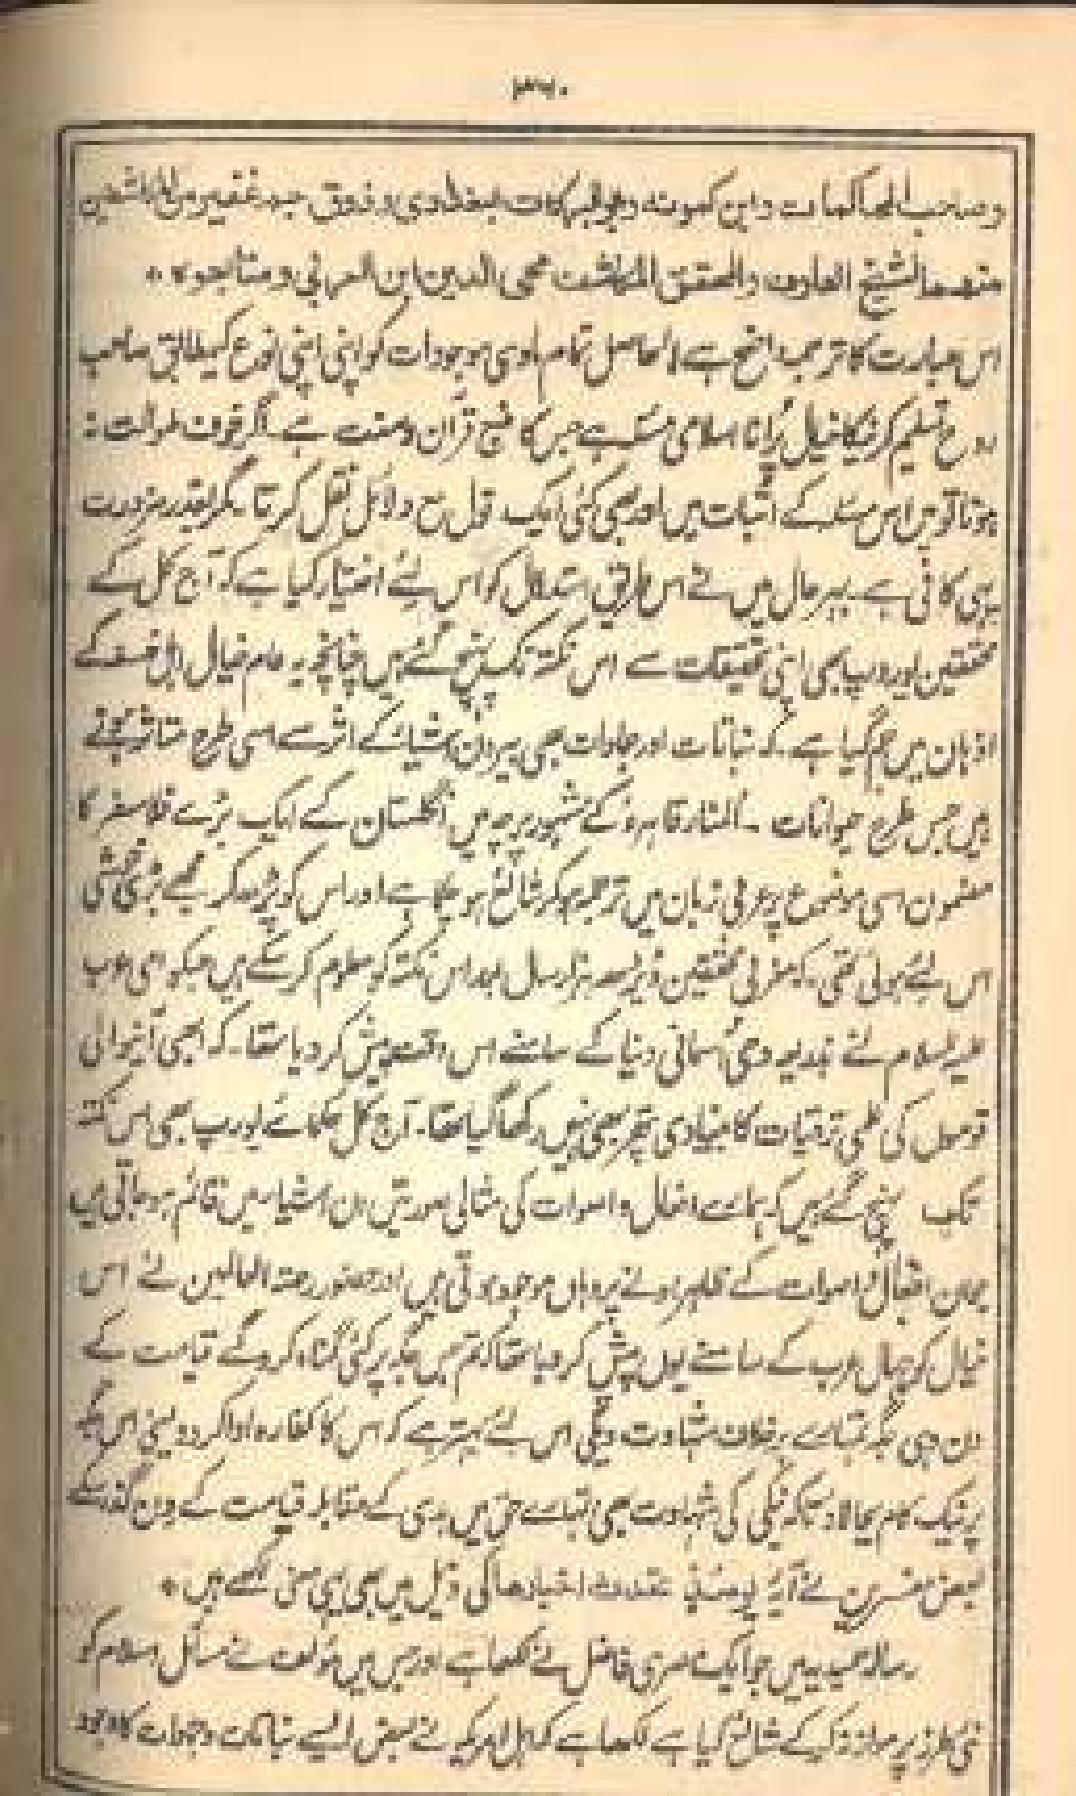 وصاحب المحاکمات وابن کمونه وابو البرکات البغدادی وفوق جمع غفیر من
منهم الشیخ العارف والمحقق المکاشف محی الدین ابن العربی ومتابعوه *
اس عبارت کا ترجمہ واضح ہے الحاصل تمام مادی موجودات کو اپنی اپنی نوع کیمطابق صاحب
روح تسلیم کرنیکا خیال پرانا اسلامی مسئلہ ہے جس کا منبع قرآن وسنت ہے۔ اگر خوف طوالت نہ
ہوتا تو میں اس مسئلہ کے اثبات میں اور بھی کئی ایک قول مع دلائل نقل کرتا۔ مگر بقدر ضرورت
یہی کافی ہے۔ بہر حال میں نے اس طریق استدلال کو اس لئے اختیار کیا ہے کہ آج کل کے
محققین یورپ بھی اپنی تحقیقات سے اس نکتہ تک پہنچ گئے ہیں چنانچہ یہ عام خیال اہل فلسفہ کے
اذہان میں جم گیا ہے۔ کہ نباتات اور جمادات بھی بیرونی اشیاء کے اثر سے اسی طرح متاثر ہوتے
ہیں جس طرح حیوانات ۔ المنار قاہرہ کے مشہور پرچہ میں انگلستان کے ایک بڑے فلاسفر کا
مضمون اسی موضوع پر عربی زبان میں ترجمہ ہوکر شائع ہو چکا ہے اور اس کو پڑھ کر مجھے بڑی خوشی
اس لئے ہوئی تھی۔ کہ مغربی محققین ڈیڑھ ہزار سال بعد اس نکتہ کو معلوم کر سکے ہیں جسکو امی عرب
علیہ السلام نے بذریعہ وحی آسمانی دنیا کے سامنے اس وقت پیش کر دیا تھا۔ کہ ابھی آنیوالی
قوموں کی علمی ترقیات کا بنیادی پتھر بھی نہیں رکھا گیا تھا۔ آج کل حکمائے یورپ بھی اس نکتہ
تک پہنچ گئے ہیں کہ ہمارے افعال و اصوات کی مثالی صورتیں ان اشیاء میں قائم ہو جاتی ہیں
جو ان افعال و اصوات کے ظاہر ہونے پر وہاں موجود ہوتی ہیں اور حضور رحمۃ العالمین نے اس
خیال کو جہال عرب کے سامنے یوں پیش کر دیا تھا کہ تم جس جگہ پر کوئی گناہ کروگے قیامت کے
دن وہی جگہ تمہارے برخلاف شہادت دیگی اس لئے بہتر ہے کہ اس کا کفارہ ادا کر دو یعنی اس جگہ
پر نیک کام بجا لاؤ تاکہ نیکی کی شہادت بھی تمہارے حق میں بدی کے مقابلہ قیامت کے دن گذر سکے
بعض مفسرین نے آیۃ یومئذ تحدث اخبارها کی ذیل میں بھی یہی معنی لکھے ہیں *
رسالہ حمیدیہ میں جو ایک مصری فاضل نے لکھا ہے اور جس میں مؤلف نے مسائل اسلام کو
نئی طرز پر موازنہ کر کے شائع کیا ہے لکھا ہے کہ اہل امریکہ نے بعض ایسے نباتات و کا وجود